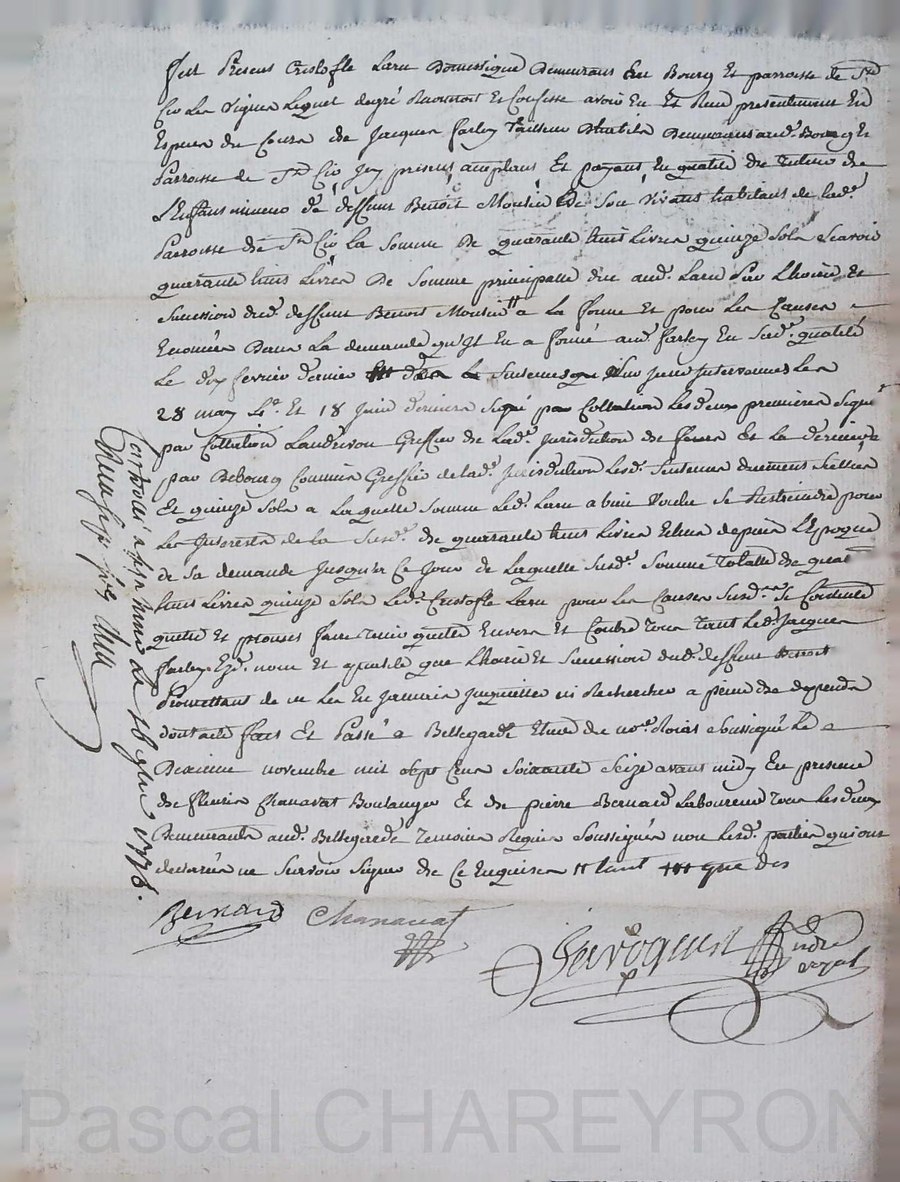 fut Présent Cristofle Laru Domestique Demeurant au Bourg Et parroisse de St
Cir Les Vignes Lequel de gré Reconnoit Et Confesse avoir Eu Et Reçu presentement En
Espece du Cours de Jacques farley Tailleur D'habits Demeurant aud. Bourg Et
Parroisse de St Cir Icy present acceptant Et payant En qualité de Tuteur de
L'Enfant mineur de deffunt Benoit Mousié De Son Vivant habitant de lad.
Parroisse de St Cir La Somme De quarante huit Livres quinze Sols Scavoir
quarante huit Livres De Somme principalle due aud. Laru Par L'hoirie Et
Sucession dud. deffunt Benoit Mousié a La forme Et pour Les Causes
Enoncées Dans La demande qu'Il En a formé aud. farley En Sad. qualité
Le dix fevrier dernier Sentences qui Sont Intervenues Les
28 may Et 18 Juin derniers Signé par Collation Les deux premieres Signé
par Collation Laudevou Greffier de Lad. Jurisdiction de Et La derniere
par Debourg Commis Greffier de lad. Jurisdiction Lesd. Sentences duement Scellées
Et quinze Sols a Laquelle Somme Led. Laru a bien Voulu Se Restreindre pour
Les Interests de La Susd. de quarante huit Livres Echus depuis L'Epoque
de Sa demande Jusqu'a Ce Jour de Laquelle Susd. Somme Totalle de quarante
huit Livres quinze Sols Led. Cristofle Laru pour Les Causes Susd. Se Contente
quitte Et promet faire Tenir quitte Envers Et Contre Tous Tant Led. Jacques
farley Ezd. nom Et qualité que L'hoirie Et Sucession dud. deffunt Benoit
Promettant de ne Les En Jamais Inquietter ni Rechercher a peine de depends
dont acte fait Et Passé a Bellegarde Etude du no.re Roial Soussigné Le
Dixieme novembre mil Sept Cens Soixante Seize avant midy En presence
de fleurie Chanavat Boulanger Et de pierre Bernard Laboureur Tous Les deux
Demeurants aud. Bellegarde Temoins Requis Soussignés non Lesd. parties qui ont
declarées ne Scavoir Signer de Ce Enquises tant que des
Bernard Chanavat
Javoquese
no.re
royal
Controllé a le 16 9bre 1776.
Reçu Sept Sols
Pascal CHAREYRON